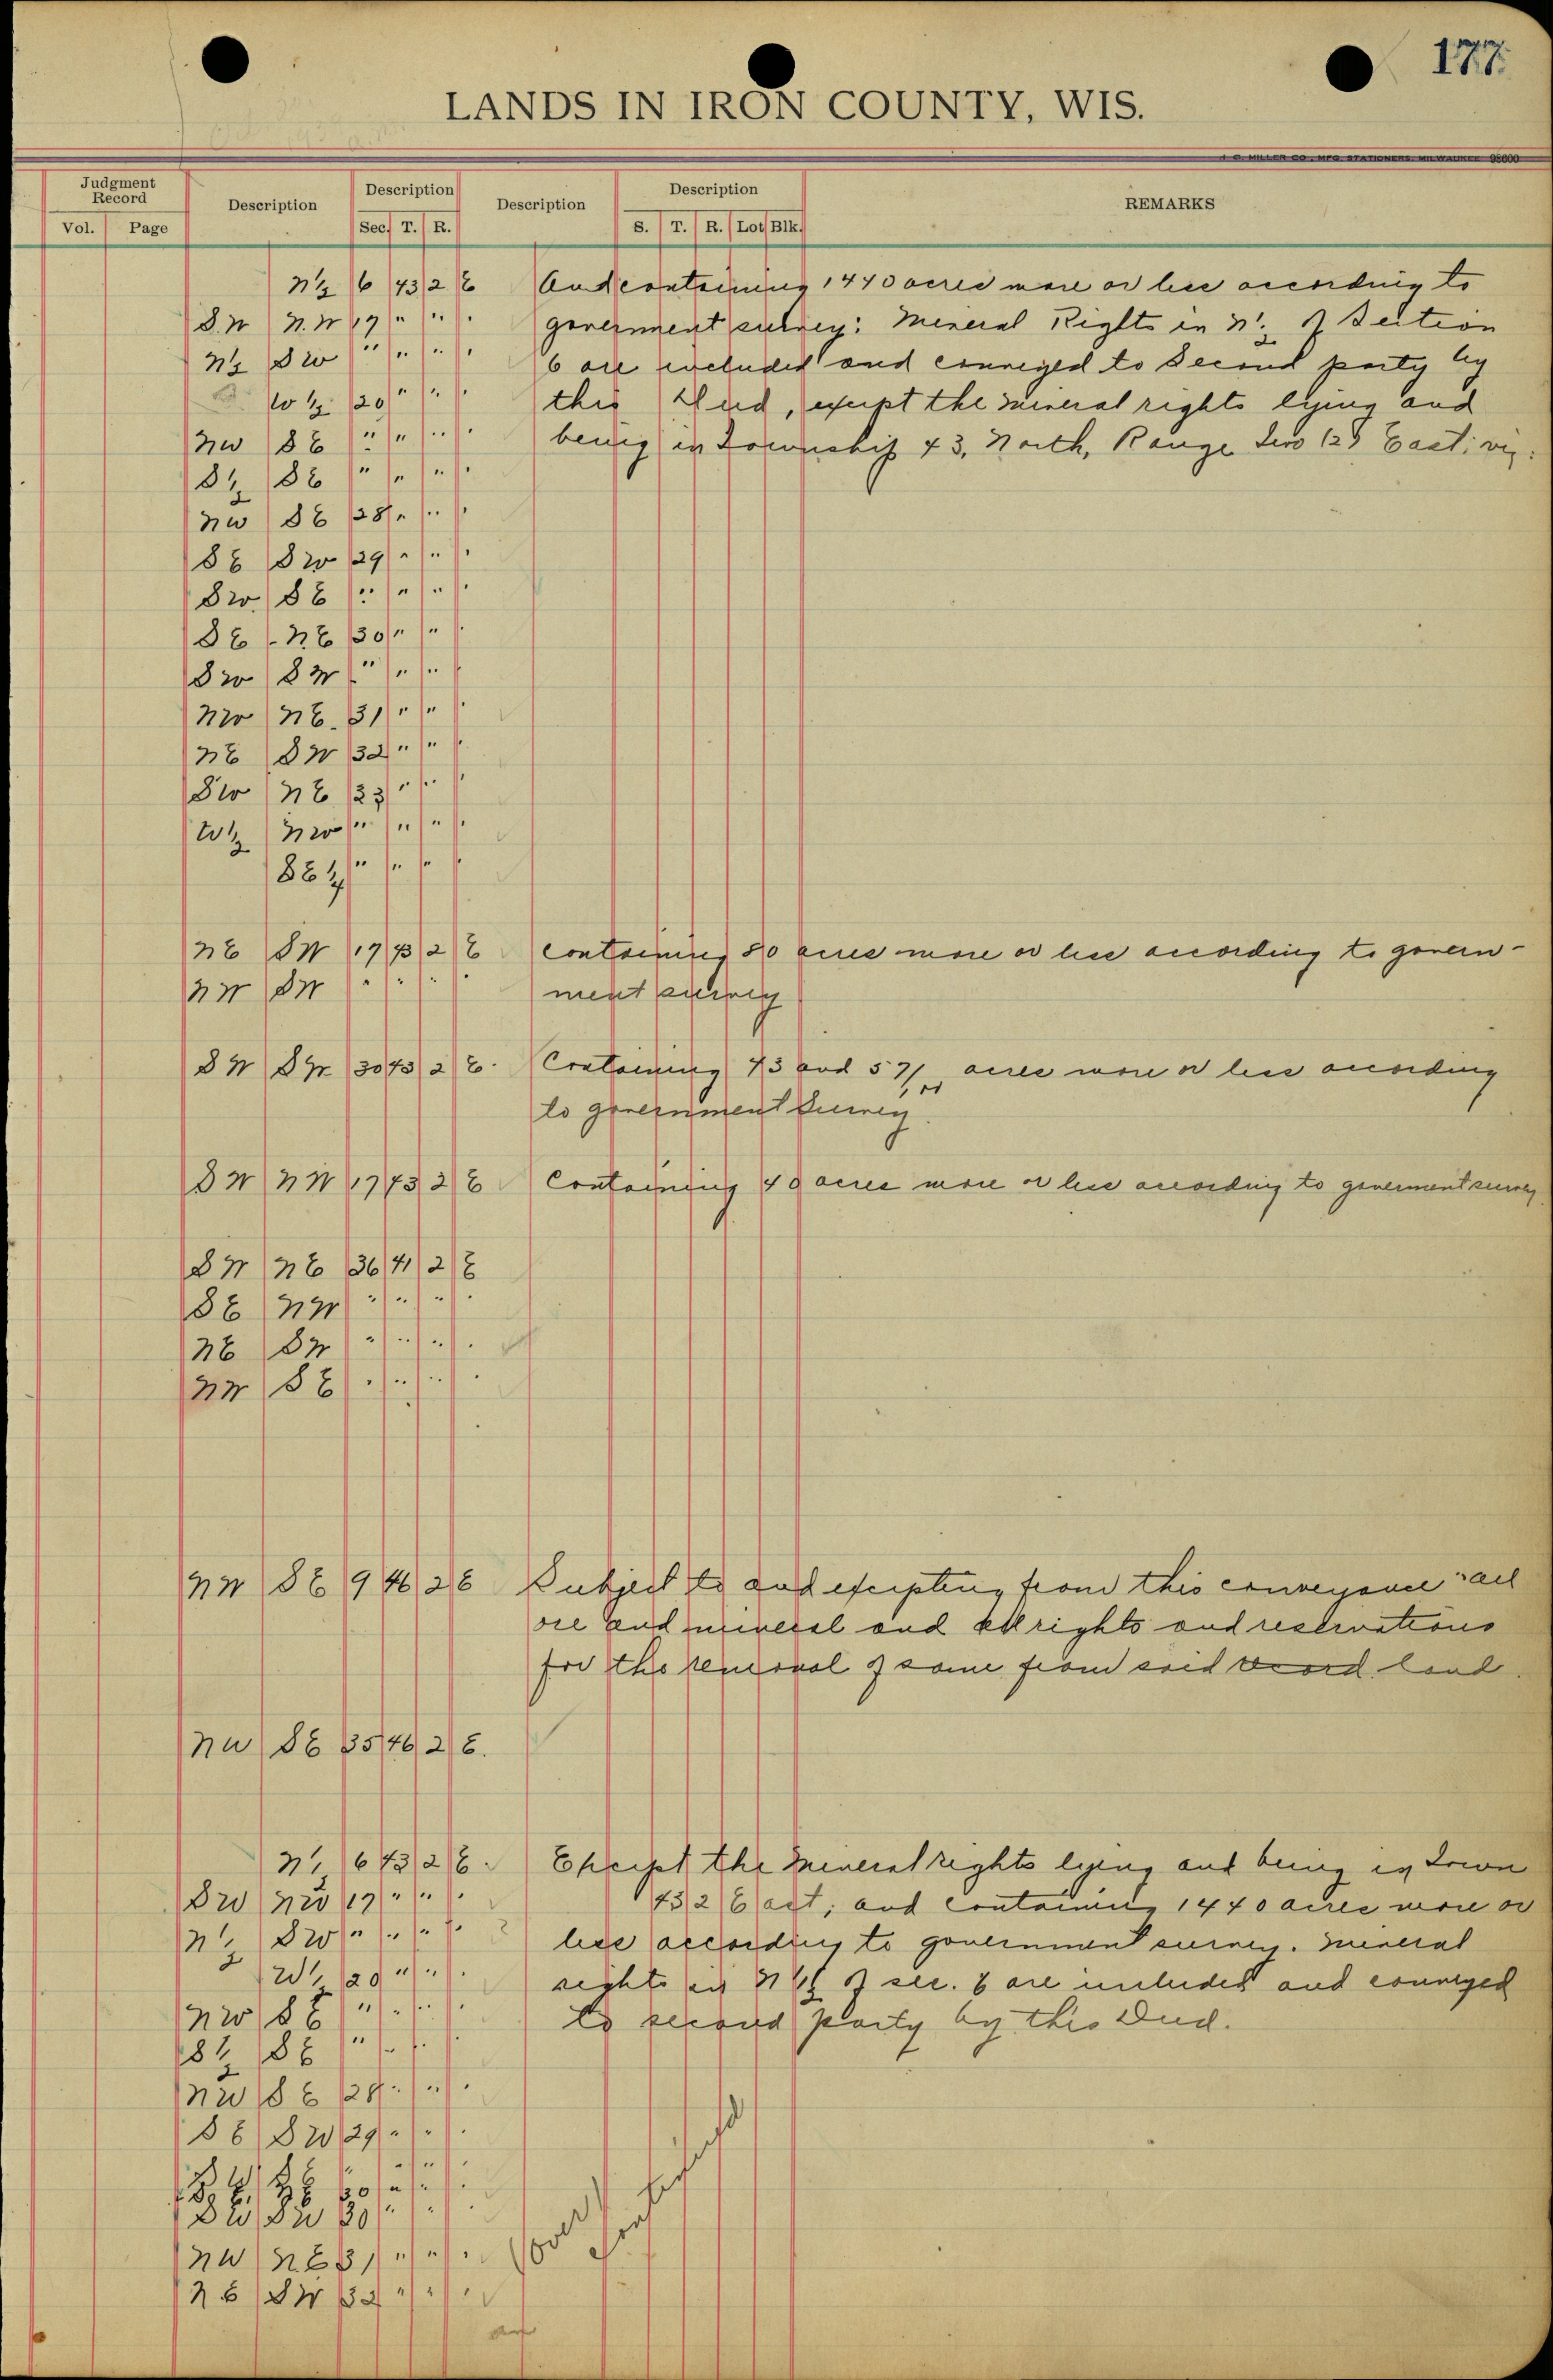 177
LANDS IN IRON COUNTY, WIS.
J. C. MILLER CO., MFG. STATIONERS, MILWAUKEE 98600
Judgment Record Description Description Description Description REMARKS
Vol. Page Sec. T. R. S. T. R. Lot Blk.
N½ 6 43 2 E And containing 1440 acres more or less according to
S.W N.W 17 " " " government survey: Mineral Rights in N½ of Section
N½ SW " " " " 6 are included and conveyed to Second party by
W½ 20 " " " this Deed, except the mineral rights lying and
NW SE " " " " being in Township 43, North, Range Two (2) East; viz.
S½ SE " " " "
NW SE 28 " " "
SE SW 29 " " "
SW. SE " " " "
SE NE 30 " " "
SW SW " " " "
NW NE. 31 " " "
NE SW 32 " " "
SW NE 33 " " "
W½ NW " " " "
SE¼ " " " "
NE SW 17 43 2 E containing 80 acres more or less according to govern-
NW SW " " " " ment survey
SW SW 30 43 2 E. Containing 43 and 57/100 acres more or less according
to government survey.
SW NW 17 43 2 E Containing 40 acres more or less according to goverment survey
SW NE 36 41 2 E
SE NW " " " "
NE SW " " " "
NW SE " " " "
NW SE 9 46 2 E Subject to and excepting from this conveyance all
ore and mineral and all rights and reservations
for the removal of same from said land.
NW SE 35 46 2 E.
N½ 6 43 2 E. Except the Mineral rights lying and being in Town
SW NW 17 " " " 43, 2 East; and containing 1440 acres more or
N½ SW " " " " less according to government survey. Mineral
W½ 20 " " " rights in N½ of sec. 6 are included and conveyed
NW SE " " " " to second party by this Deed.
S½ SE " " " "
NW SE 28 " " "
SE SW 29 " " "
SW SW 30 " " "
NW NE 31 " " "
over
NE SW 32 " " "